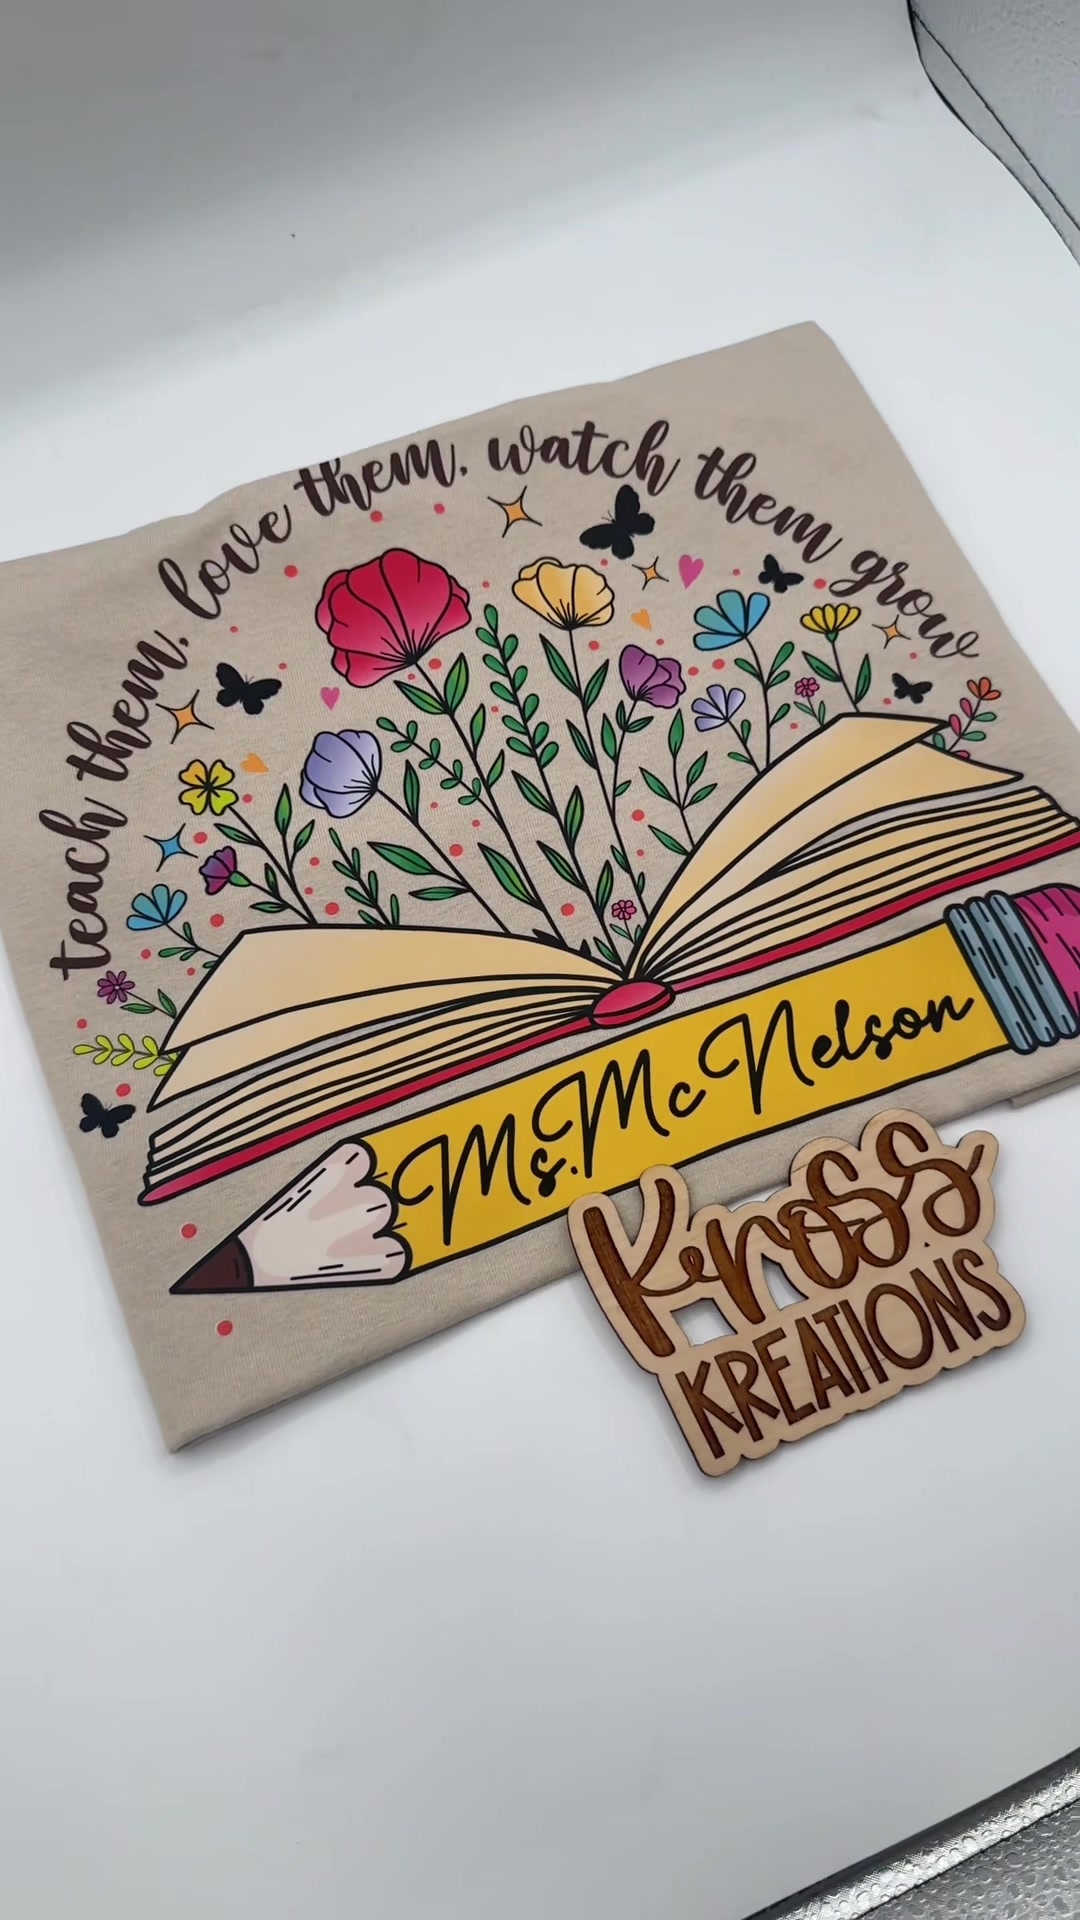 teach them, love them, watch them grow
Ms. McNelson
Kross
KREATIONS